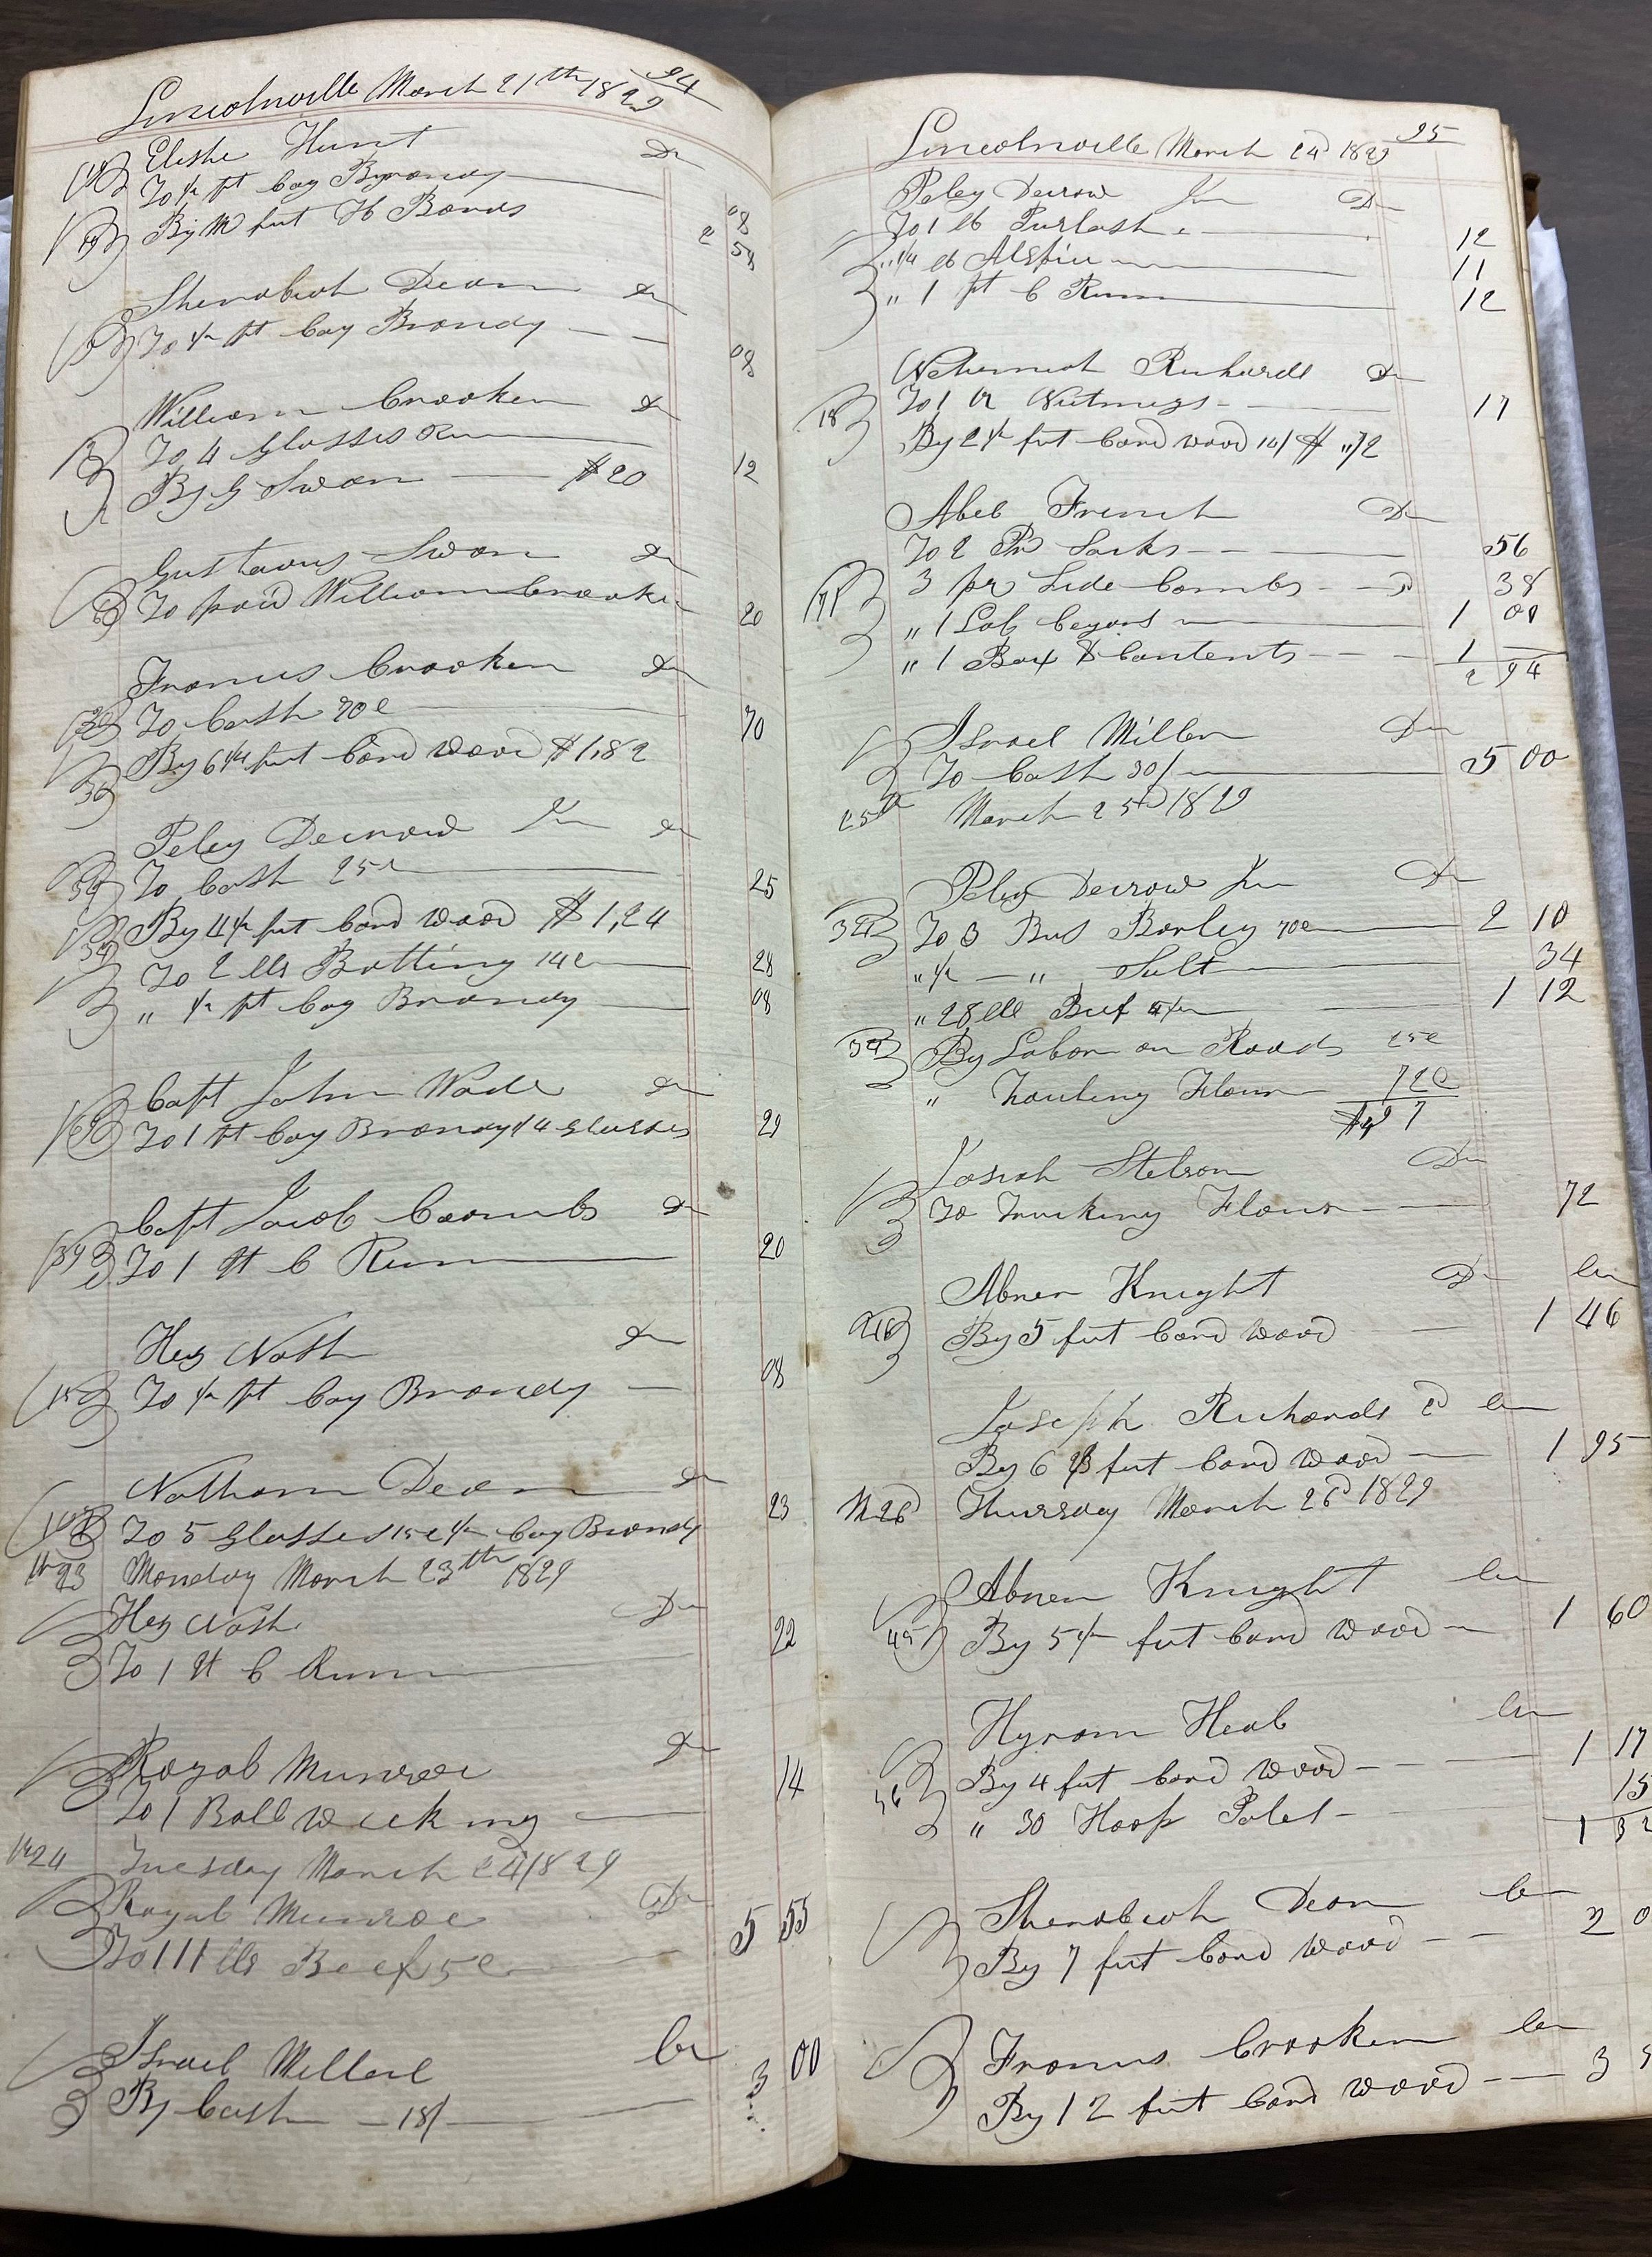 94
Lincolnville March 21th 1829
Elisha Hunt Dr
To ½ pt Cog Brandy 08
By feet Bords 2 58
Shenabiah Dean Dr
To ½ pt Cog Brandy 08
William Crooker Dr
To 4 Glasses Rum 12
By G Swan $20
Gustavus Swan Dr
To paid William Crooker 20
Francis Crooker Dr
To Cash 70c 70
By 6¼ feet Cord Wood $1,82
Peleg Decrow Jun Dr
To Cash 25c 25
By 4¼ feet Cord Wood $1,24
To 2 lbs Batting 14c 28
" ½ pt Cog Brandy 08
Capt John Wade Dr
To 1 pt Cog Brandy & 4 Glasses 29
Capt Jacob Coombs Dr
To 1 qt C Rum 20
Hez Nash Dr
To ½ pt Cog Brandy 08
Nathan Dean Dr
To 5 Glasses 15c ½ Cog Brandy 23
M 23 Monday March 23th 1829
Hez Nash Dr
To 1 qt C Rum 22
Royal Munroe Dr
To 1 Ball Wicking 14
M 24 Tuesday March 24 1829
Royal Munroe Dr
To 111 lbs Beef 5c 5 55
Israel Miller Cr
By Cash 18/ 3 00
95
Lincolnville March 24d 1829
Peleg Decrow Jun Dr
To 1 lb Purlash 12
" ¼ lb Alspice 11
" 1 pt C Rum 12
Nehemiah Richards Dr
18 To 1 oz Nutmegs 17
By 2½ feet Cord Wood 14/ $ "72
Abel French Dr
To 2 Pr Locks 56
3 pr Side Combs 38
" 1 Lot Cegars 1 00
" 1 Box & Contents 1
2 94
Israel Miller Dr
To Cash 30/ 5 00
25th March 25d 1829
Peleg Decrow Jun Dr
34 To 3 Bus Barley 70c 2 10
" ½ — " Salt 34
" 28 lb Beef 4/ 1 12
34 By Labor on Roads 25c
" Hauling Flour 72c
$ 97
Josiah Stetson Dr
To Trucking Flour 72
Abner Knight Dr Cr
By 5 feet Cord Wood 1 46
Joseph Richards 2d Cr
By 6 feet Cord Wood 1 95
M 26 Thursday March 26d 1829
Abner Knight Cr
45 By 5½ feet Cord Wood 1 60
Hyrom Heal Cr
By 4 feet Cord Wood 1 17
" 30 Hoop Poles 15
1 32
Shenabiah Dean Cr
By 7 feet Cord Wood 2 0
Francis Crooker Cr
By 12 feet Cord Wood 3 5